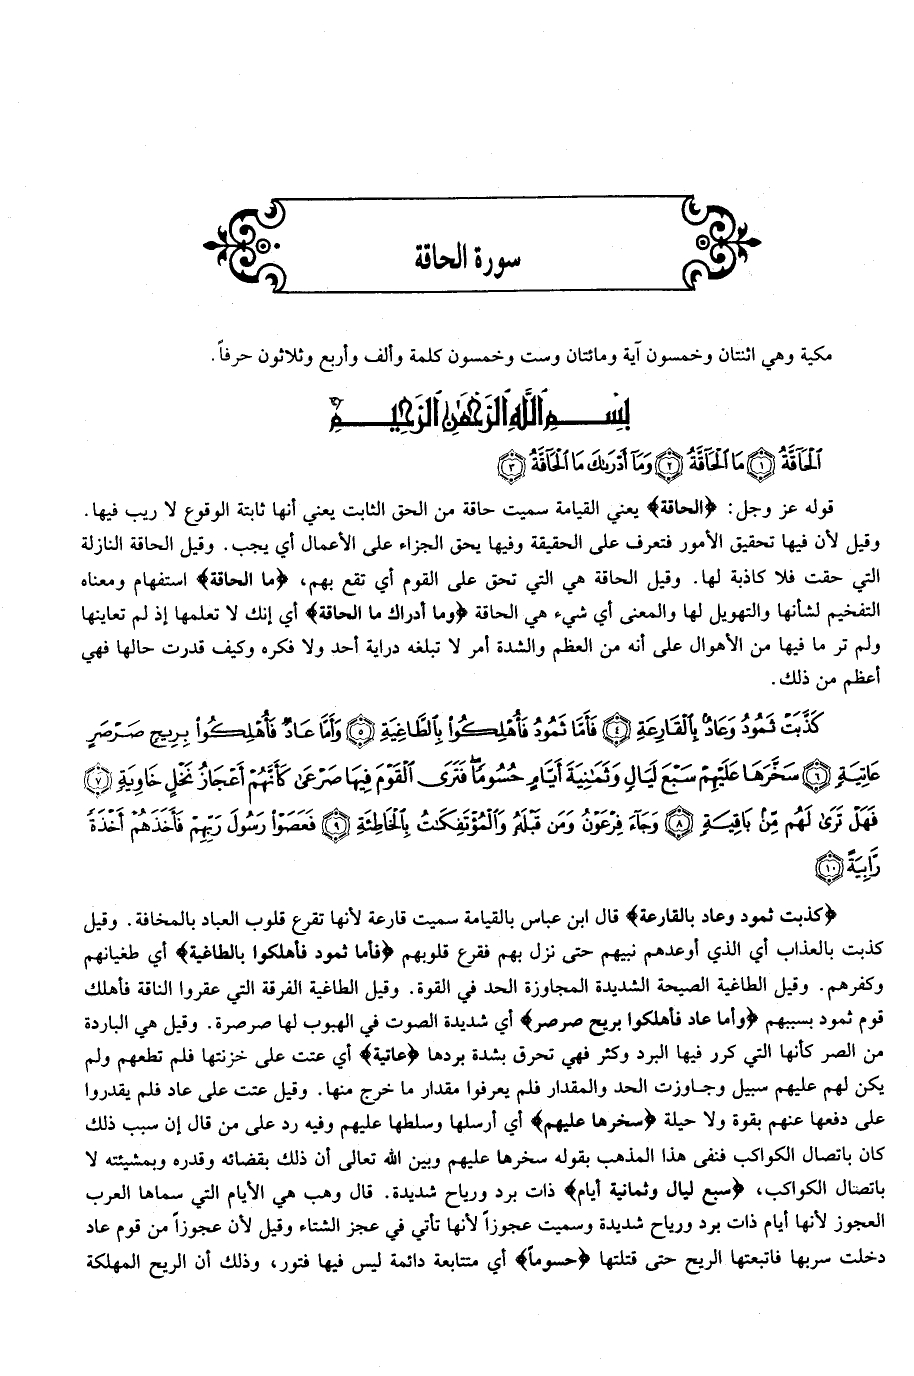 سورة الحاقة
مكية وهي اثنتان وخمسون آية ومائتان وست وخمسون كلمة وألف وأربع وثلاثون حرفاً.
بِسْمِ ٱللَّهِ ٱلرَّحْمَٰنِ ٱلرَّحِيمِ
ٱلْحَآقَّةُ ﴿١﴾ مَا ٱلْحَآقَّةُ ﴿٢﴾ وَمَآ أَدْرَىٰكَ مَا ٱلْحَآقَّةُ ﴿٣﴾
قوله عز وجل: ﴿الحاقة﴾ يعني القيامة سميت حاقة من الحق الثابت يعني أنها ثابتة الوقوع لا ريب فيها.
وقيل لأن فيها تحقيق الأمور فتعرف على الحقيقة وفيها يحق الجزاء على الأعمال أي يجب. وقيل الحاقة النازلة
التي حقت فلا كاذبة لها. وقيل الحاقة هي التي تحق على القوم أي تقع بهم، ﴿ما الحاقة﴾ استفهام ومعناه
التفخيم لشأنها والتهويل لها والمعنى أي شيء هي الحاقة ﴿وما أدراك ما الحاقة﴾ أي إنك لا تعلمها إذ لم تعاينها
ولم تر ما فيها من الأهوال على أنه من العظم والشدة أمر لا تبلغه دراية أحد ولا فكره وكيف قدرت حالها فهي
أعظم من ذلك.
كَذَّبَتْ ثَمُودُ وَعَادٌۢ بِٱلْقَارِعَةِ ﴿٤﴾ فَأَمَّا ثَمُودُ فَأُهْلِكُوا۟ بِٱلطَّاغِيَةِ ﴿٥﴾ وَأَمَّا عَادٌ فَأُهْلِكُوا۟ بِرِيحٍ صَرْصَرٍ
عَاتِيَةٍ ﴿٦﴾ سَخَّرَهَا عَلَيْهِمْ سَبْعَ لَيَالٍ وَثَمَٰنِيَةَ أَيَّامٍ حُسُومًا فَتَرَى ٱلْقَوْمَ فِيهَا صَرْعَىٰ كَأَنَّهُمْ أَعْجَازُ نَخْلٍ خَاوِيَةٍ ﴿٧﴾
فَهَلْ تَرَىٰ لَهُم مِّنۢ بَاقِيَةٍ ﴿٨﴾ وَجَآءَ فِرْعَوْنُ وَمَن قَبْلَهُۥ وَٱلْمُؤْتَفِكَٰتُ بِٱلْخَاطِئَةِ ﴿٩﴾ فَعَصَوْا۟ رَسُولَ رَبِّهِمْ فَأَخَذَهُمْ أَخْذَةً
رَّابِيَةً ﴿١٠﴾
﴿كذبت ثمود وعاد بالقارعة﴾ قال ابن عباس بالقيامة سميت قارعة لأنها تقرع قلوب العباد بالمخافة. وقيل
كذبت بالعذاب أي الذي أوعدهم نبيهم حتى نزل بهم فقرع قلوبهم ﴿فأما ثمود فأهلكوا بالطاغية﴾ أي طغيانهم
وكفرهم. وقيل الطاغية الصيحة الشديدة المجاوزة الحد في القوة. وقيل الطاغية الفرقة التي عقروا الناقة فأهلك
قوم ثمود بسببهم ﴿وأما عاد فأهلكوا بريح صرصر﴾ أي شديدة الصوت في الهبوب لها صرصرة. وقيل هي الباردة
من الصر كأنها التي كرر فيها البرد وكثر فهي تحرق بشدة بردها ﴿عاتية﴾ أي عتت على خزنتها فلم تطعهم ولم
يكن لهم عليهم سبيل وجاوزت الحد والمقدار فلم يعرفوا مقدار ما خرج منها. وقيل عتت على عاد فلم يقدروا
على دفعها عنهم بقوة ولا حيلة ﴿سخرها عليهم﴾ أي أرسلها وسلطها عليهم وفيه رد على من قال إن سبب ذلك
كان باتصال الكواكب فنفى هذا المذهب بقوله سخرها عليهم وبين الله تعالى أن ذلك بقضائه وقدره وبمشيئته لا
باتصال الكواكب، ﴿سبع ليال وثمانية أيام﴾ ذات برد ورياح شديدة. قال وهب هي الأيام التي سماها العرب
العجوز لأنها أيام ذات برد ورياح شديدة وسميت عجوزاً لأنها تأتي في عجز الشتاء وقيل لأن عجوزاً من قوم عاد
دخلت سربها فاتبعتها الريح حتى قتلتها ﴿حسوماً﴾ أي متتابعة دائمة ليس فيها فتور، وذلك أن الريح المهلكة